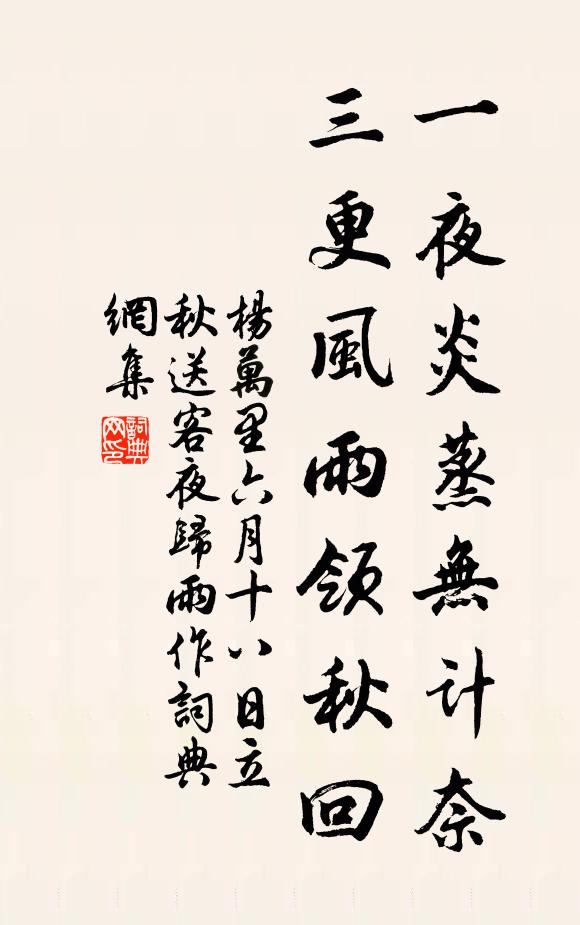 一夜炎蒸無计奈
三更風雨領秋回
楊萬里六月十八日立
秋送客夜歸雨作詞典
網集
詞典
网印